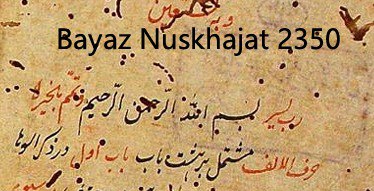 وبه نستعين
Bayaz Nuskhajat 2350
رب يسر بسم الله الرحمن الرحيم وتمم بالخير
حرف الالف مشتمل بر هشت باب باب اول در